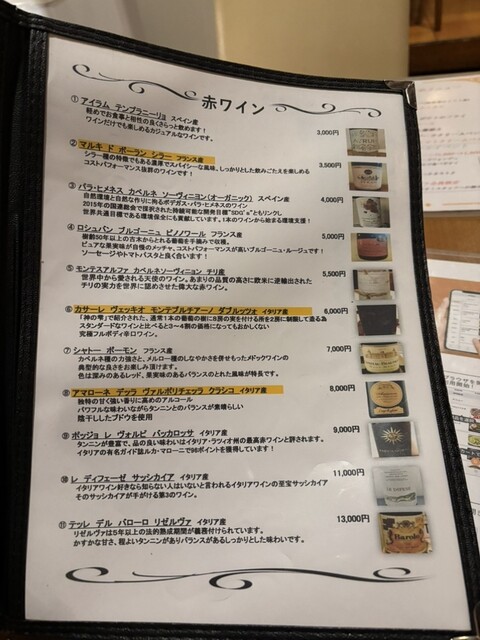 赤ワイン
①アイラム テンプラニーリョ スペイン産
軽めでお食事と相性の良くさらっと飲めます！
ワインだけでも楽しめるカジュアルなワインです。
3,000円
②マルキ ド ボーラン シラー フランス産
シラー種の特徴でもある濃厚でスパイシーな風味、しっかりとした飲みごたえを楽しめる
コストパフォーマンス抜群のワインです！
3,500円
③パラ・ヒメネス カベルネ ソーヴィニヨン(オーガニック) スペイン産
自然環境と自然な作りに拘るボデガス・パラ・ヒメネスのワイン
2015年の国連総会で採択された持続可能な開発目標"SDG's"ともリンクし
世界共通目標である環境保全にも貢献しています。1本のワインから始まる環境支援！
4,000円
④ロシュバン ブルゴーニュ ピノノワール フランス産
樹齢50年以上の古木からとれる葡萄を手摘みで収穫。
ピュアな果実味が自慢のメッチャ、コストパフォーマンスが高いブルゴーニュ・ルージュです！
ソーセージやトマトパスタと良く合います！
5,000円
⑤モンテスアルファ カベルネソーヴィニヨン チリ産
世界中から愛される天使のワイン。あまりの品質の高さに欧米に逆輸出された
チリの実力を世界に認めさせた偉大な赤ワイン。
5,500円
⑥カサーレ ヴェッキオ モンテプルチアーノ ダブルッツォ イタリア産
「神の雫」で紹介された、通常1本の葡萄の樹に8房の実を付ける所を2房に制限して造る為
スタンダードなワインと比べると3〜4倍の価値になってもおかしくない
究極フルボディ辛口ワイン。
6,000円
⑦シャトー ボーモン フランス産
カベルネ種の力強さと、メルロー種のしなやかさを併せもったメドックワインの
典型的な良さをお楽しみ頂けます。
色は深みのあるレッド、果実味のあるバランスのとれた風味が特長です。
7,000円
⑧アマローネ テッラ ヴァルポリチェッラ クラシコ イタリア産
独特の甘く強い香りに高めのアルコール
パワフルな味わいながらタンニンとのバランスが素晴らしい
陰干ししたブドウを使用
8,000円
⑨ポッジョ レ ヴォルピ バッカロッサ イタリア産
タンニンが豊富で、品の良い味わいはイタリア・ラツィオ州の最高赤ワインと評されます。
イタリアの有名ガイド誌ルカ・マローニで98ポイントを獲得しています！
9,000円
⑩レ ディフェーゼ サッシカイア イタリア産
イタリアワイン好きなら知らない人はいないと言われるイタリアワインの至宝サッシカイア
そのサッシカイアが手がける第3のワイン。
11,000円
⑪テッレ デル バローロ リゼルヴァ イタリア産
リゼルヴァは5年以上の法的熟成期間が義務付けられています。
かすかな甘さ、程よいタンニンがありバランスがあるしっかりとした味わいです。
13,000円
Barolo